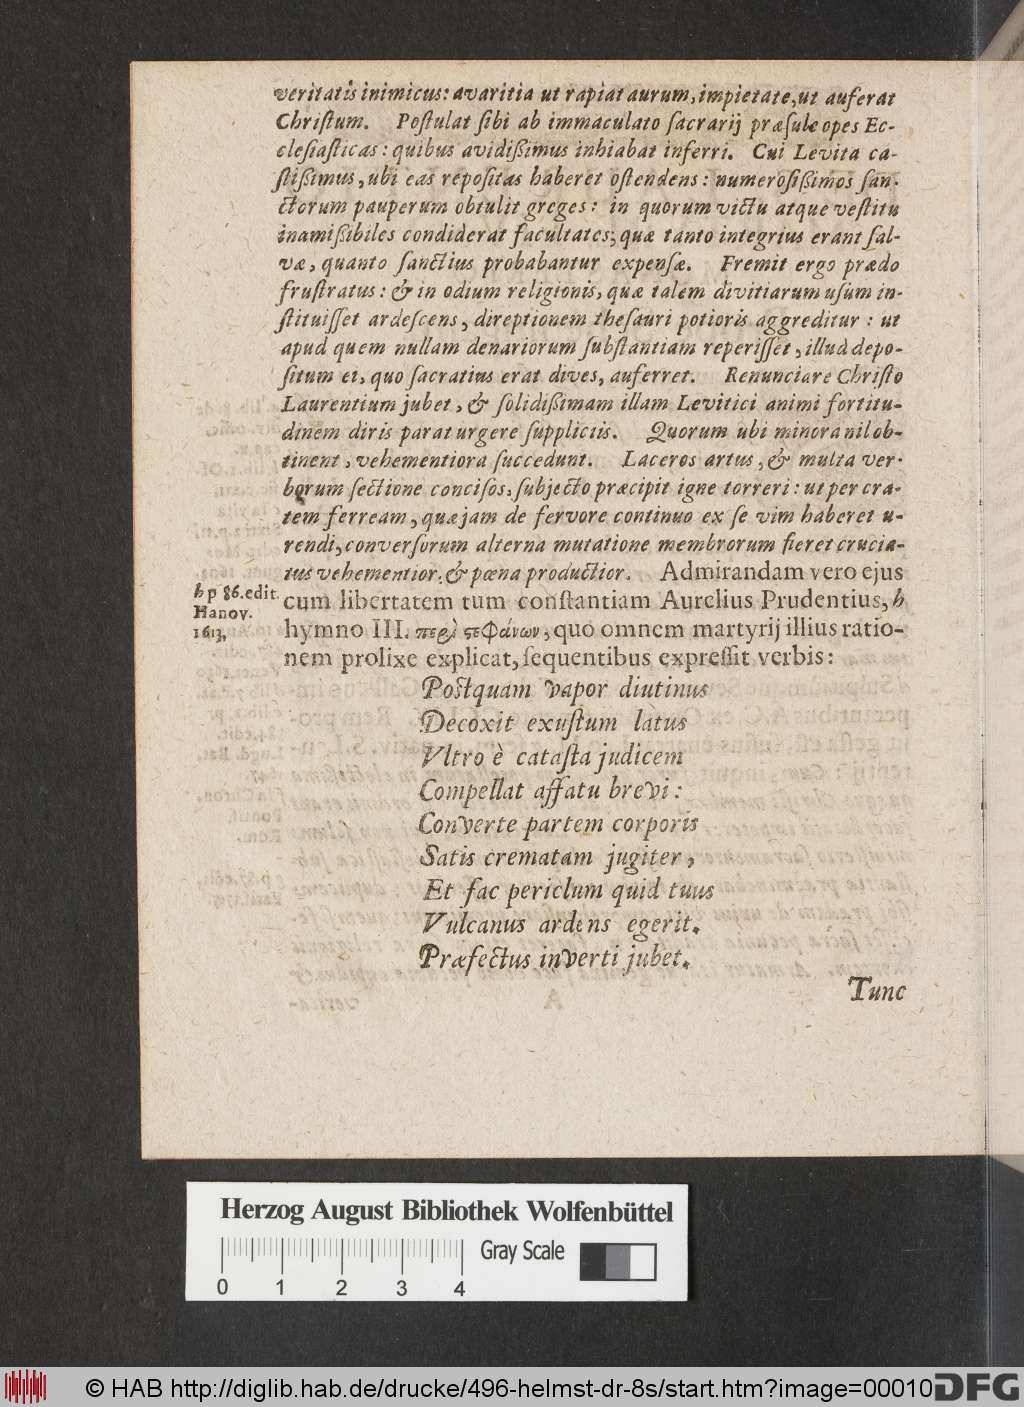 veritatis inimicus: avaritia ut rapiat aurum, impietate, ut auferat
Chriſtum. Poſtulat ſibi ab immaculato ſacrarij præſule opes Ec-
cleſiaſticas: quibus avidißimus inhiabat inferri. Cui Levita ca-
ſtißimus, ubi eas repoſitas haberet oſtendens: numeroſißimos ſan-
ctorum pauperum obtulit greges: in quorum victu atque veſtitu
inamißibiles condiderat facultates; quæ tanto integrius erant ſal-
væ, quanto ſanctius probabantur expenſæ. Fremit ergo prædo
fruſtratus: & in odium religionis, quæ talem divitiarum uſum in-
ſtituiſſet ardeſcens, direptionem theſauri potioris aggreditur: ut
apud quem nullam denariorum ſubſtantiam reperiſſet, illud depo-
ſitum et, quo ſacratius erat dives, auferret. Renunciare Chriſto
Laurentium jubet, & ſolidißimam illam Levitici animi fortitu-
dinem diris parat urgere ſuppliciis. Quorum ubi minora nil ob-
tinent, vehementiora ſuccedunt. Laceros artus, & multa ver-
berum ſectione conciſos, ſubjecto præcipit igne torreri: ut per cra-
tem ferream, quæ jam de fervore continuo ex ſe vim haberet u-
rendi, converſorum alterna mutatione membrorum fieret crucia-
tus vehementior, & pœna productior. Admirandam vero ejus
cum libertatem tum conſtantiam Aurelius Prudentius, h
hymno III. περὶ ςεφάνων, quo omnem martyrij illius ratio-
nem prolixe explicat, ſequentibus expreſſit verbis:
h p 86. edit.
Hanov.
1613,
Poſtquam vapor diutinus
Decoxit exuſtum latus
Vltro è cataſta judicem
Compellat affatu brevi:
Converte partem corporis
Satis crematam jugiter,
Et fac periclum quid tuus
Vulcanus ardens egerit.
Præfectus inverti jubet.
Tunc
Herzog August Bibliothek Wolfenbüttel
Gray Scale
0 1 2 3 4
© HAB http://diglib.hab.de/drucke/496-helmst-dr-8s/start.htm?image=00010
DFG